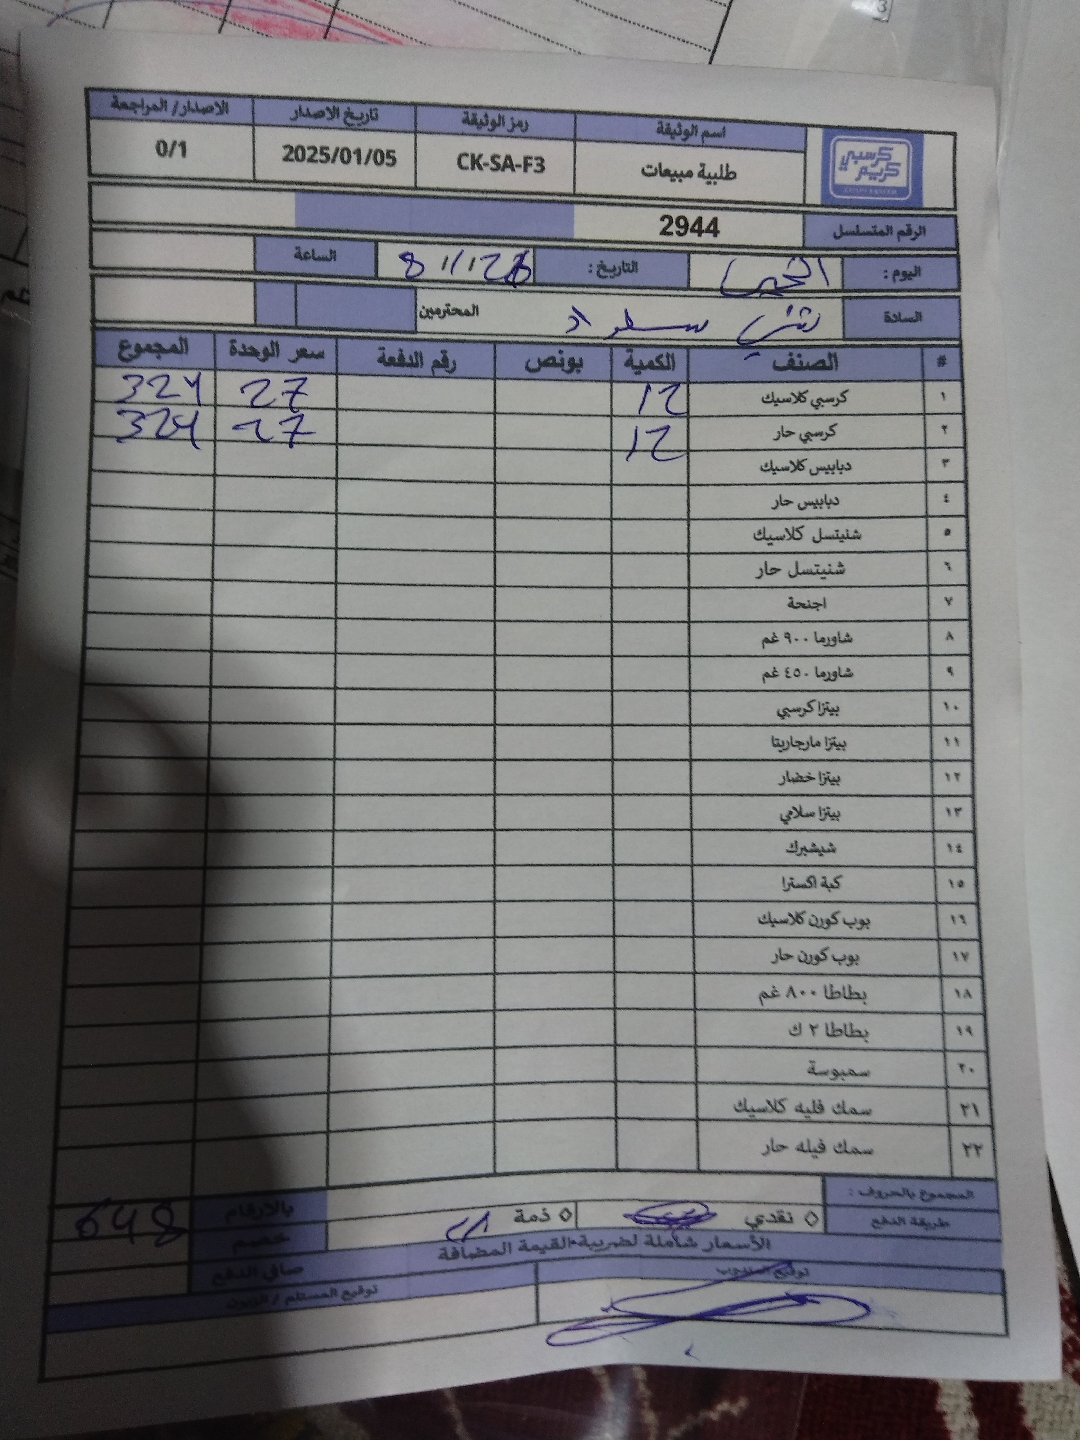 اسم الوثيقة رمز الوثيقة تاريخ الاصدار الاصدار/ المراجعة
كرسبي كريم
CRISPY KAREEM
طلبية مبيعات CK-SA-F3 2025/01/05 0/1
الرقم المتسلسل 2944
اليوم : التاريخ : الساعة
السادة المحترمين
# الصنف الكمية بونص رقم الدفعة سعر الوحدة المجموع
١ كرسبي كلاسيك 12 27 324
٢ كرسبي حار 12 27 324
٣ دبابيس كلاسيك
٤ دبابيس حار
٥ شنيتسل كلاسيك
٦ شنيتسل حار
٧ اجنحة
٨ شاورما ٩٠٠ غم
٩ شاورما ٤٥٠ غم
١٠ بيتزا كرسبي
١١ بيتزا مارجاريتا
١٢ بيتزا خضار
١٣ بيتزا سلامي
١٤ شيشبرك
١٥ كبة اكسترا
١٦ بوب كورن كلاسيك
١٧ بوب كورن حار
١٨ بطاطا ٨٠٠ غم
١٩ بطاطا ٢ ك
٢٠ سمبوسة
٢١ سمك فليه كلاسيك
٢٢ سمك فيله حار
المجموع بالحروف :
بالارقام 648
طريقة الدفع ◊ نقدي ◊ ذمة
خصم
الأسعار شاملة لضريبة القيمة المضافة
صافي الدفع
توقيع المندوب توقيع المستلم / الزبون